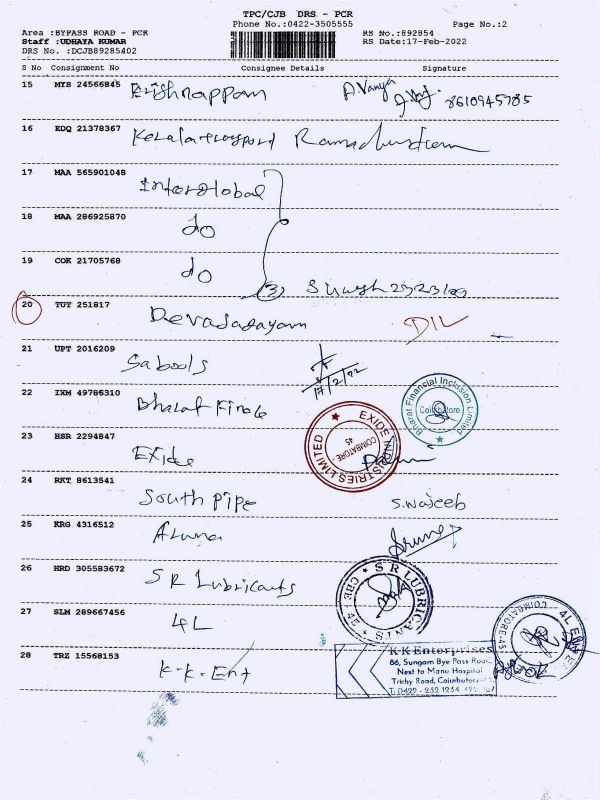 TPC/CJB DRS - PCR
Phone No.:0422-3505555
Page No.:2
Area :BYPASS ROAD - PCR
Staff :UDHAYA KUMAR
DRS No. :DCJB89285402
RS No.:892854
RS Date:17-Feb-2022
S No Consignment No Consignee Details Signature
15 MYS 24566845 Krishnappam A Vanya 8610945785
16 EDQ 21378367 Kerala transport
17 MAA 565901048 Interglobal
18 MAA 286925870 do
19 COK 21705768 do (3)
20 TUT 251817 Devasagayam DIL
21 UPT 2016209 Sabools 17/2/22
22 IXM 49786310 Bharat Finance
Bharat Financial Inclusion Limited
Coimbatore
23 HSR 2294847 Exide
EXIDE INDUSTRIES LIMITED
COIMBATORE
45
24 RKT 8613541 South Pipe S.Najeeb
25 KRG 4316512 Aruna
26 HRD 305583672 SR Lubricants
S R LUBRICANTS
CBE
27 SLM 289667456 4L
COIMBATORE-45
28 TRZ 15568153 K-K-Ent
K K Enterprises
86, Sungam Bye Pass Road,
Next to Manu Hospital
Trichy Road, Coimbatore
T: 0422 - 232 1234